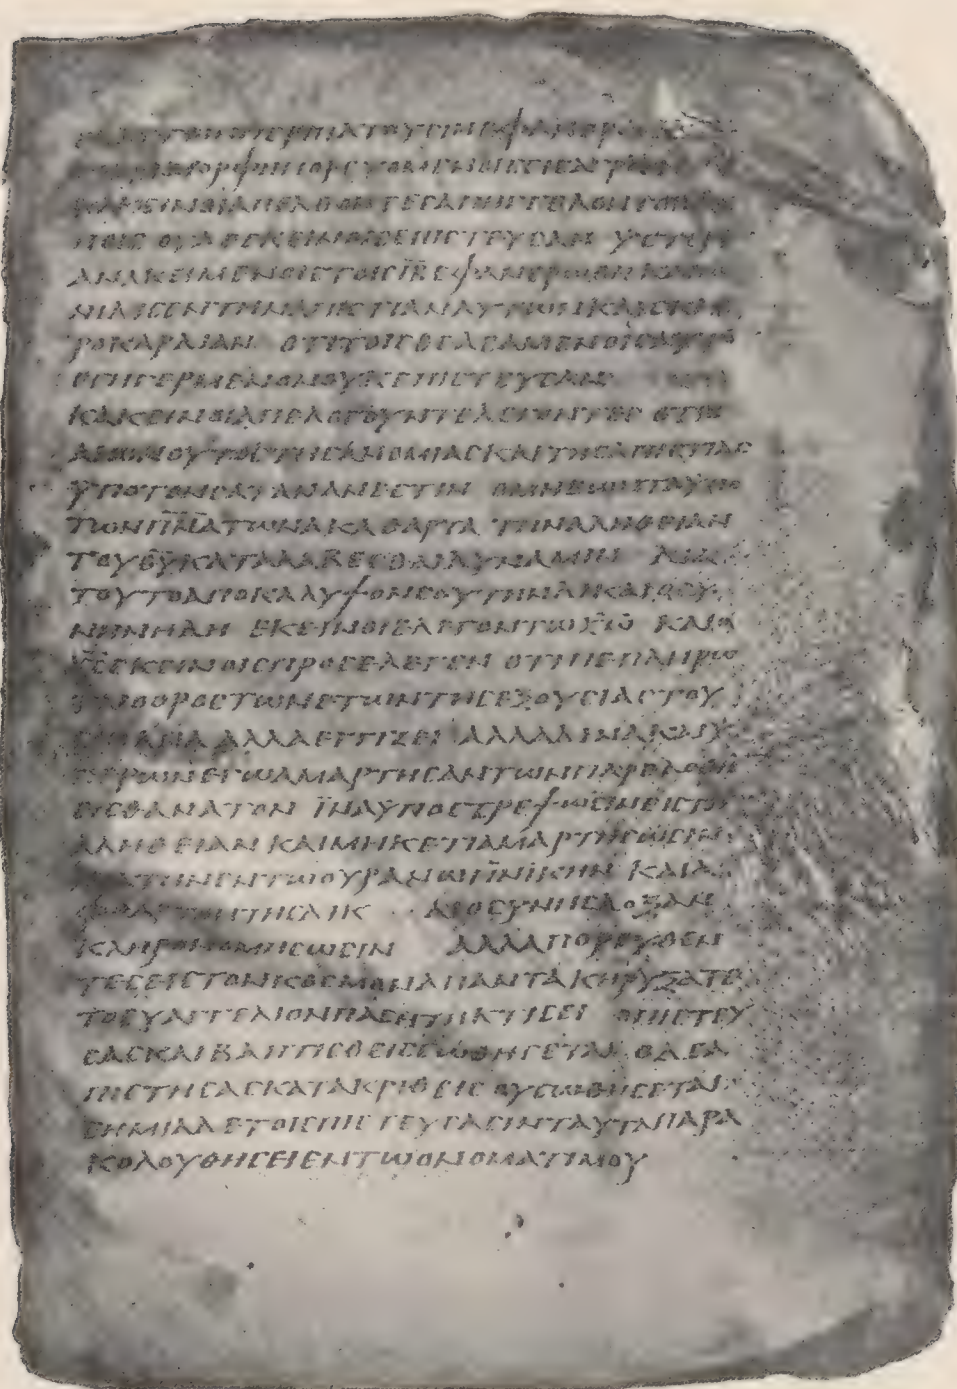 ΠΕΡΙΠΑΤΟΥCΙΝ ΕΦΑΝΕΡΩ
ΜΟΡΦΗ ΠΟΡΕΥΟΜΕΝΟΙC ΕΙC ΑΓΡΟΝ
ΚΑΚΕΙΝΟΙ ΑΠΕΛΘΟΝΤΕC
ΠΟΙC ΟΥΔΕ ΕΚΕΙΝΟΙC ΕΠΙCΤΕΥCΑΝ ΥCΤΕΡΟ
ΑΝΑΚΕΙΜΕΝΟΙC ΤΟΙC ΙΑ ΕΦΑΝΕΡΩΘΗ ΚΑΙ ΩΝΙ
ΔΙCΕΝ ΤΗΝ ΑΠΙCΤΙΑΝ ΑΥΤΩΝ ΚΑΙ CΚΛΗ
ΡΟΚΑΡΔΙΑΝ ΟΤΙ ΤΟΙC ΘΕΑCΑΜΕΝΟΙC ΑΥΤΟ
ΕΓΗΓΕΡΜΕΝΟΝ ΟΥΚ ΕΠΙCΤΕΥCΑΝ
ΚΑΚΕΙΝΟΙ ΑΠΕΛΟΓΟΥΝΤΕ ΛΕΓΟΝΤΕC ΟΤΙ Ο
ΑΙΩΝ ΟΥΤΟC ΤΗC ΑΝΟΜΙΑC ΚΑΙ ΤΗC ΑΠΙCΤΙΑC
ΥΠΟ ΤΟΝ CΑΤΑΝΑΝ ΕCΤΙΝ Ο ΜΗ ΕΩΝ ΤΑ ΥΠΟ
ΤΩΝ ΠΝΑΤΩΝ ΑΚΑΘΑΡΤΑ ΤΗΝ ΑΛΗΘΕΙΑΝ
ΤΟΥ ΘΥ ΚΑΤΑΛΑΒΕCΘΑΙ ΔΥΝΑΜΙΝ ΔΙΑ
ΤΟΥΤΟ ΑΠΟΚΑΛΥΨΟΝ CΟΥ ΤΗΝ ΔΙΚΑΙΟCΥ
ΝΗΝ ΗΔΗ ΕΚΕΙΝΟΙ ΕΛΕΓΟΝ ΤΩ ΧΩ ΚΑΙ Ο
ΧC ΕΚΕΙΝΟΙC ΠΡΟCΕΛΕΓΕΝ ΟΤΙ ΠΕΠΛΗΡΩ
ΤΑΙ Ο ΟΡΟC ΤΩΝ ΕΤΩΝ ΤΗC ΕΞΟΥCΙΑC ΤΟΥ
CΑΤΑΝΑ ΑΛΛΑ ΕΓΓΙΖΕΙ ΑΛΛΑ ΔΙΝΑ ΚΑΙ Υ
ΠΕΡ ΩΝ ΕΓΩ ΑΜΑΡΤΗCΑΝΤΩΝ ΠΑΡΕΔΟΘΗ
ΕΙC ΘΑΝΑΤΟΝ ΙΝΑ ΥΠΟCΤΡΕΨΩCΙΝ ΕΙC ΤΗ
ΑΛΗΘΕΙΑΝ ΚΑΙ ΜΗΚΕΤΙ ΑΜΑΡΤΗCΩCΙΝ
ΙΝΑ ΤΗΝ ΕΝ ΤΩ ΟΥΡΑΝΩ ΠΝΙΚΗΝ ΚΑΙ Α
ΦΘΑΡΤΟΝ ΤΗC ΔΙΚΑΙΟCΥΝΗC ΔΟΞΑΝ
ΚΛΗΡΟΝΟΜΗCΩCΙΝ ΑΛΛΑ ΠΟΡΕΥΘΕΝ
ΤΕC ΕΙC ΤΟΝ ΚΟCΜΟΝ ΑΠΑΝΤΑ ΚΗΡΥΞΑΤΕ
ΤΟ ΕΥΑΓΓΕΛΙΟΝ ΠΑCΗ ΤΗ ΚΤΙCΕΙ Ο ΠΙCΤΕΥ
CΑC ΚΑΙ ΒΑΠΤΙCΘΕΙC CΩΘΗCΕΤΑΙ Ο ΔΕ Α
ΠΙCΤΗCΑC ΚΑΤΑΚΡΙΘΕΙC ΟΥ CΩΘΗCΕΤΑΙ
CΗΜΙΑ ΔΕ ΤΟΙC ΠΙCΤΕΥCΑCΙΝ ΤΑΥΤΑ ΠΑΡΑ
ΚΟΛΟΥΘΗCΕΙ ΕΝ ΤΩ ΟΝΟΜΑΤΙ ΜΟΥ